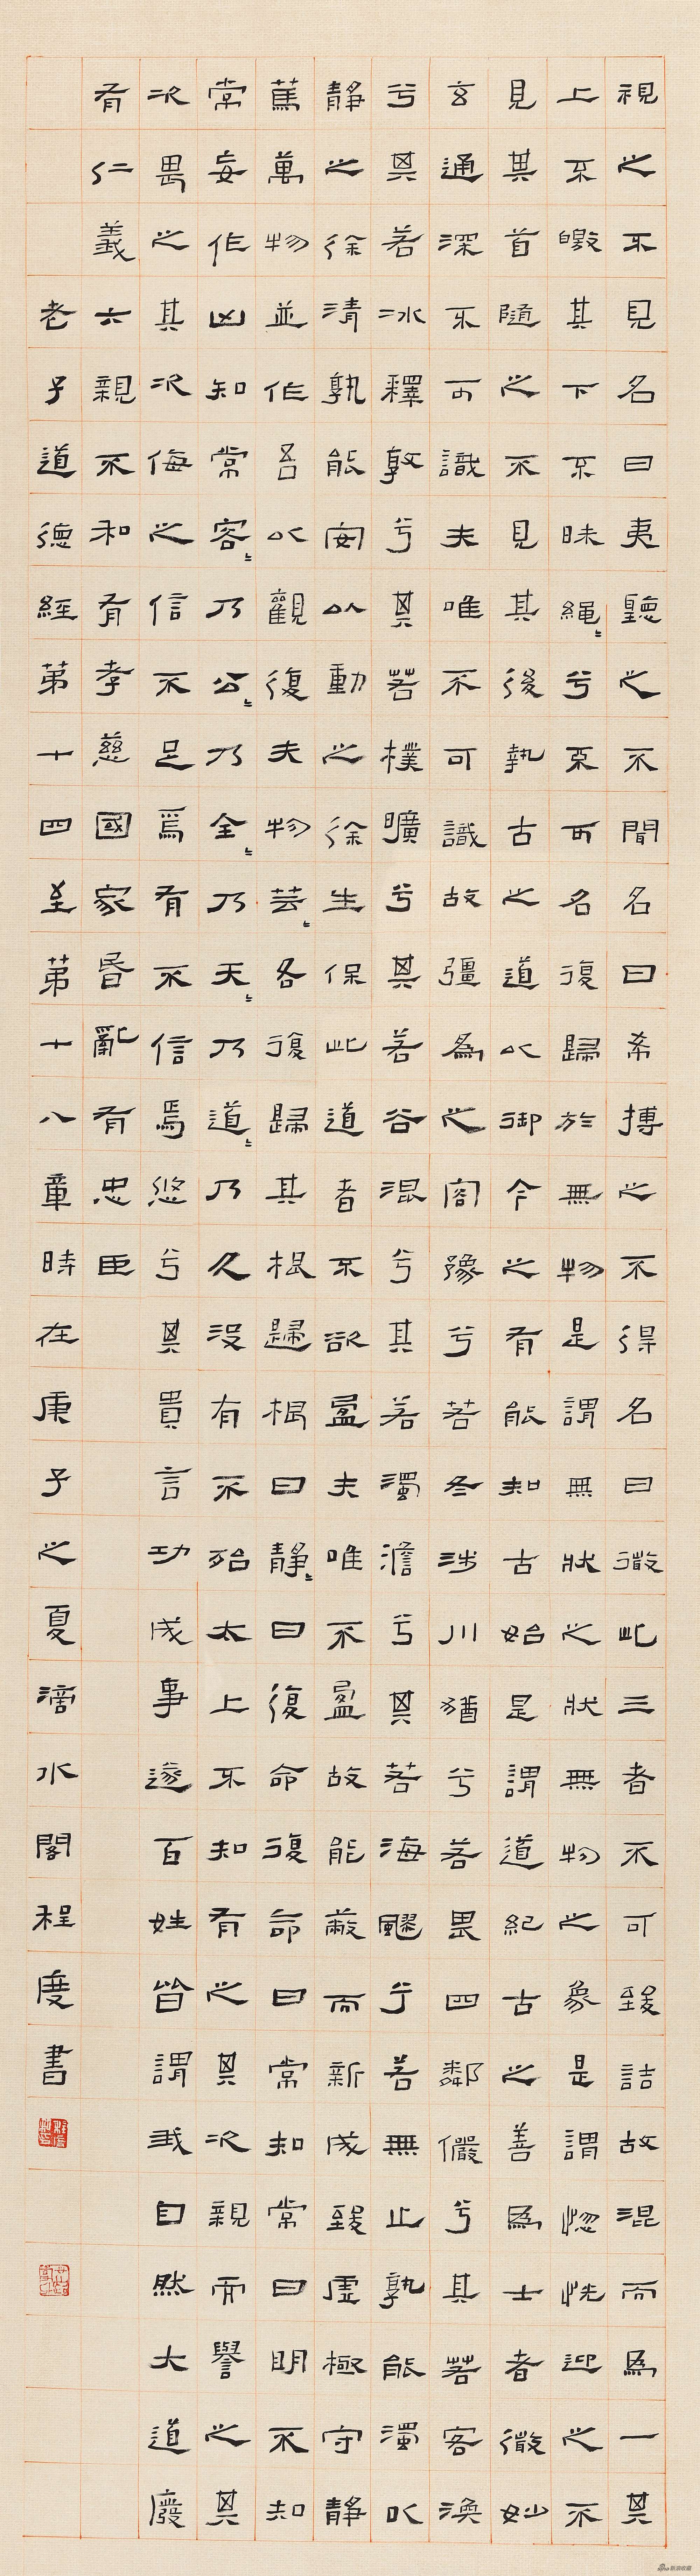 視之不見名曰夷聽之不聞名曰希搏之不得名曰微此三者不可致詰故混而爲一其
上不皦其下不昧繩〻兮不可名復歸於無物是謂無狀之狀無物之象是謂惚恍迎之不
見其首隨之不見其後執古之道以御今之有能知古始是謂道紀古之善爲士者微妙
玄通深不可識夫唯不可識故彊爲之容豫兮若冬涉川猶兮若畏四鄰儼兮其若客渙
兮其若冰釋敦兮其若樸曠兮其若谷混兮其若濁澹兮其若海飂兮若無止孰能濁以
靜之徐清孰能安以動之徐生保此道者不欲盈夫唯不盈故能蔽而新成致虛極守靜
篤萬物並作吾以觀復夫物芸〻各復歸其根歸根曰靜〻曰復命復命曰常知常曰明不知
常妄作凶知常容〻乃公〻乃全〻乃天〻乃道〻乃久沒有不殆太上不知有之其次親而譽之其
次畏之其次侮之信不足焉有不信焉悠兮其貴言功成事遂百姓皆謂我自然大道廢
有仁義六親不和有孝慈國家昏亂有忠臣
老子道德經第十四至第十八章時在庚子之夏滴水閣程度書